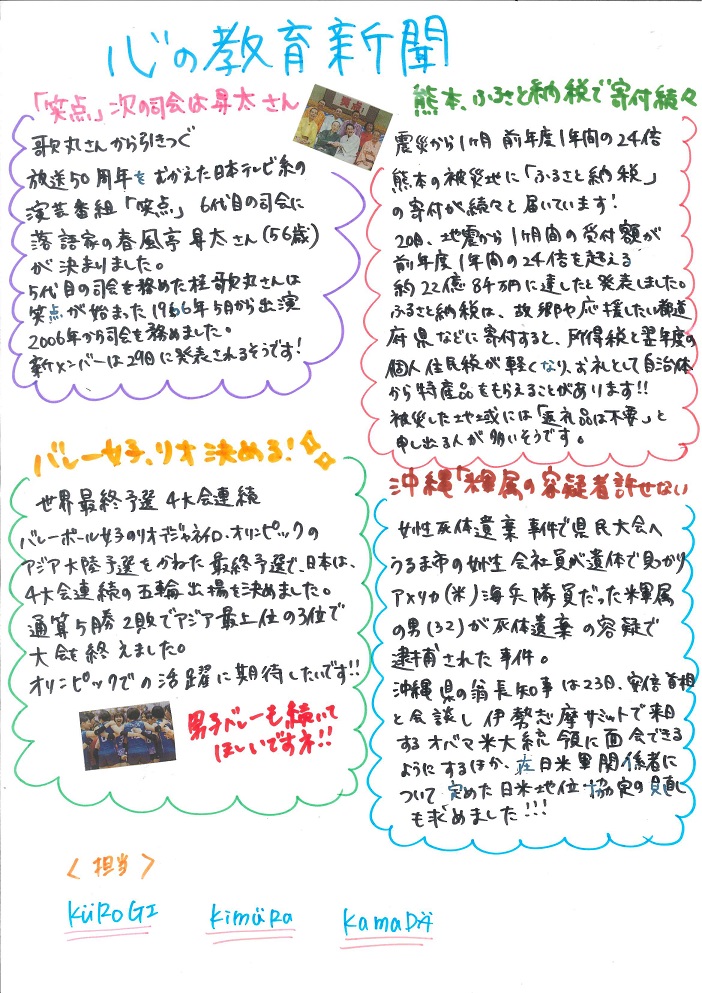 心の教育新聞
「笑点」次の司会は昇太さん
歌丸さんから引きつぐ
放送50周年をむかえた日本テレビ系の
演芸番組「笑点」 6代目の司会に
落語家の春風亭昇太さん(56歳)
が決まりました。
5代目の司会を務めた桂歌丸さんは
笑点が始まった1966年5月から出演
2006年から司会を務めました。
新メンバーは29日に発表されるそうです!
熊本、ふるさと納税で寄付続々
震災から1ヶ月 前年度1年間の24倍
熊本の被災地に「ふるさと納税」
の寄付が続々と届いています!
20日、地震から1ヶ月間の受付額が
前年度1年間の24倍を超える
約22億8千万に達したと発表しました。
ふるさと納税は、故郷や応援したい都道
府県などに寄付すると、所得税と翌年度の
個人住民税が軽くなり、お礼として自治体
から特産品をもらえることがあります!!
被災した地域には「返礼品は不要」と
申し出る人が多いそうです。
バレー女子、リオ決める!
世界最終予選 4大会連続
バレーボール女子のリオデジャネイロ・オリンピックの
アジア大陸予選をかねた最終予選で、日本は、
4大会連続の五輪出場を決めました。
通算5勝2敗でアジア最上位の3位で
大会を終えました。
オリンピックでの活躍に期待したいです!!
男子バレーも続いて
ほしいですネ!!
沖縄「米軍属の容疑者許せない
女性死体遺棄事件で県民大会へ
うるま市の女性会社員が遺体で見つかり
アメリカ(米)海兵隊員だった米軍属
の男(32)が死体遺棄の容疑で
逮捕された事件。
沖縄県の翁長知事は23日、安倍首相
と会談し伊勢志摩サミットで来日
するオバマ米大統領に面会できる
ようにするほか、在日米軍関係者に
ついて定めた日米地位協定の見直し
も求めました!!!
<担当>
KüRoGI
KimüRa
KamaDÄ